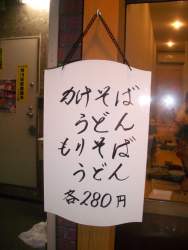 かけそば
うどん
もりそば
うどん
各280円